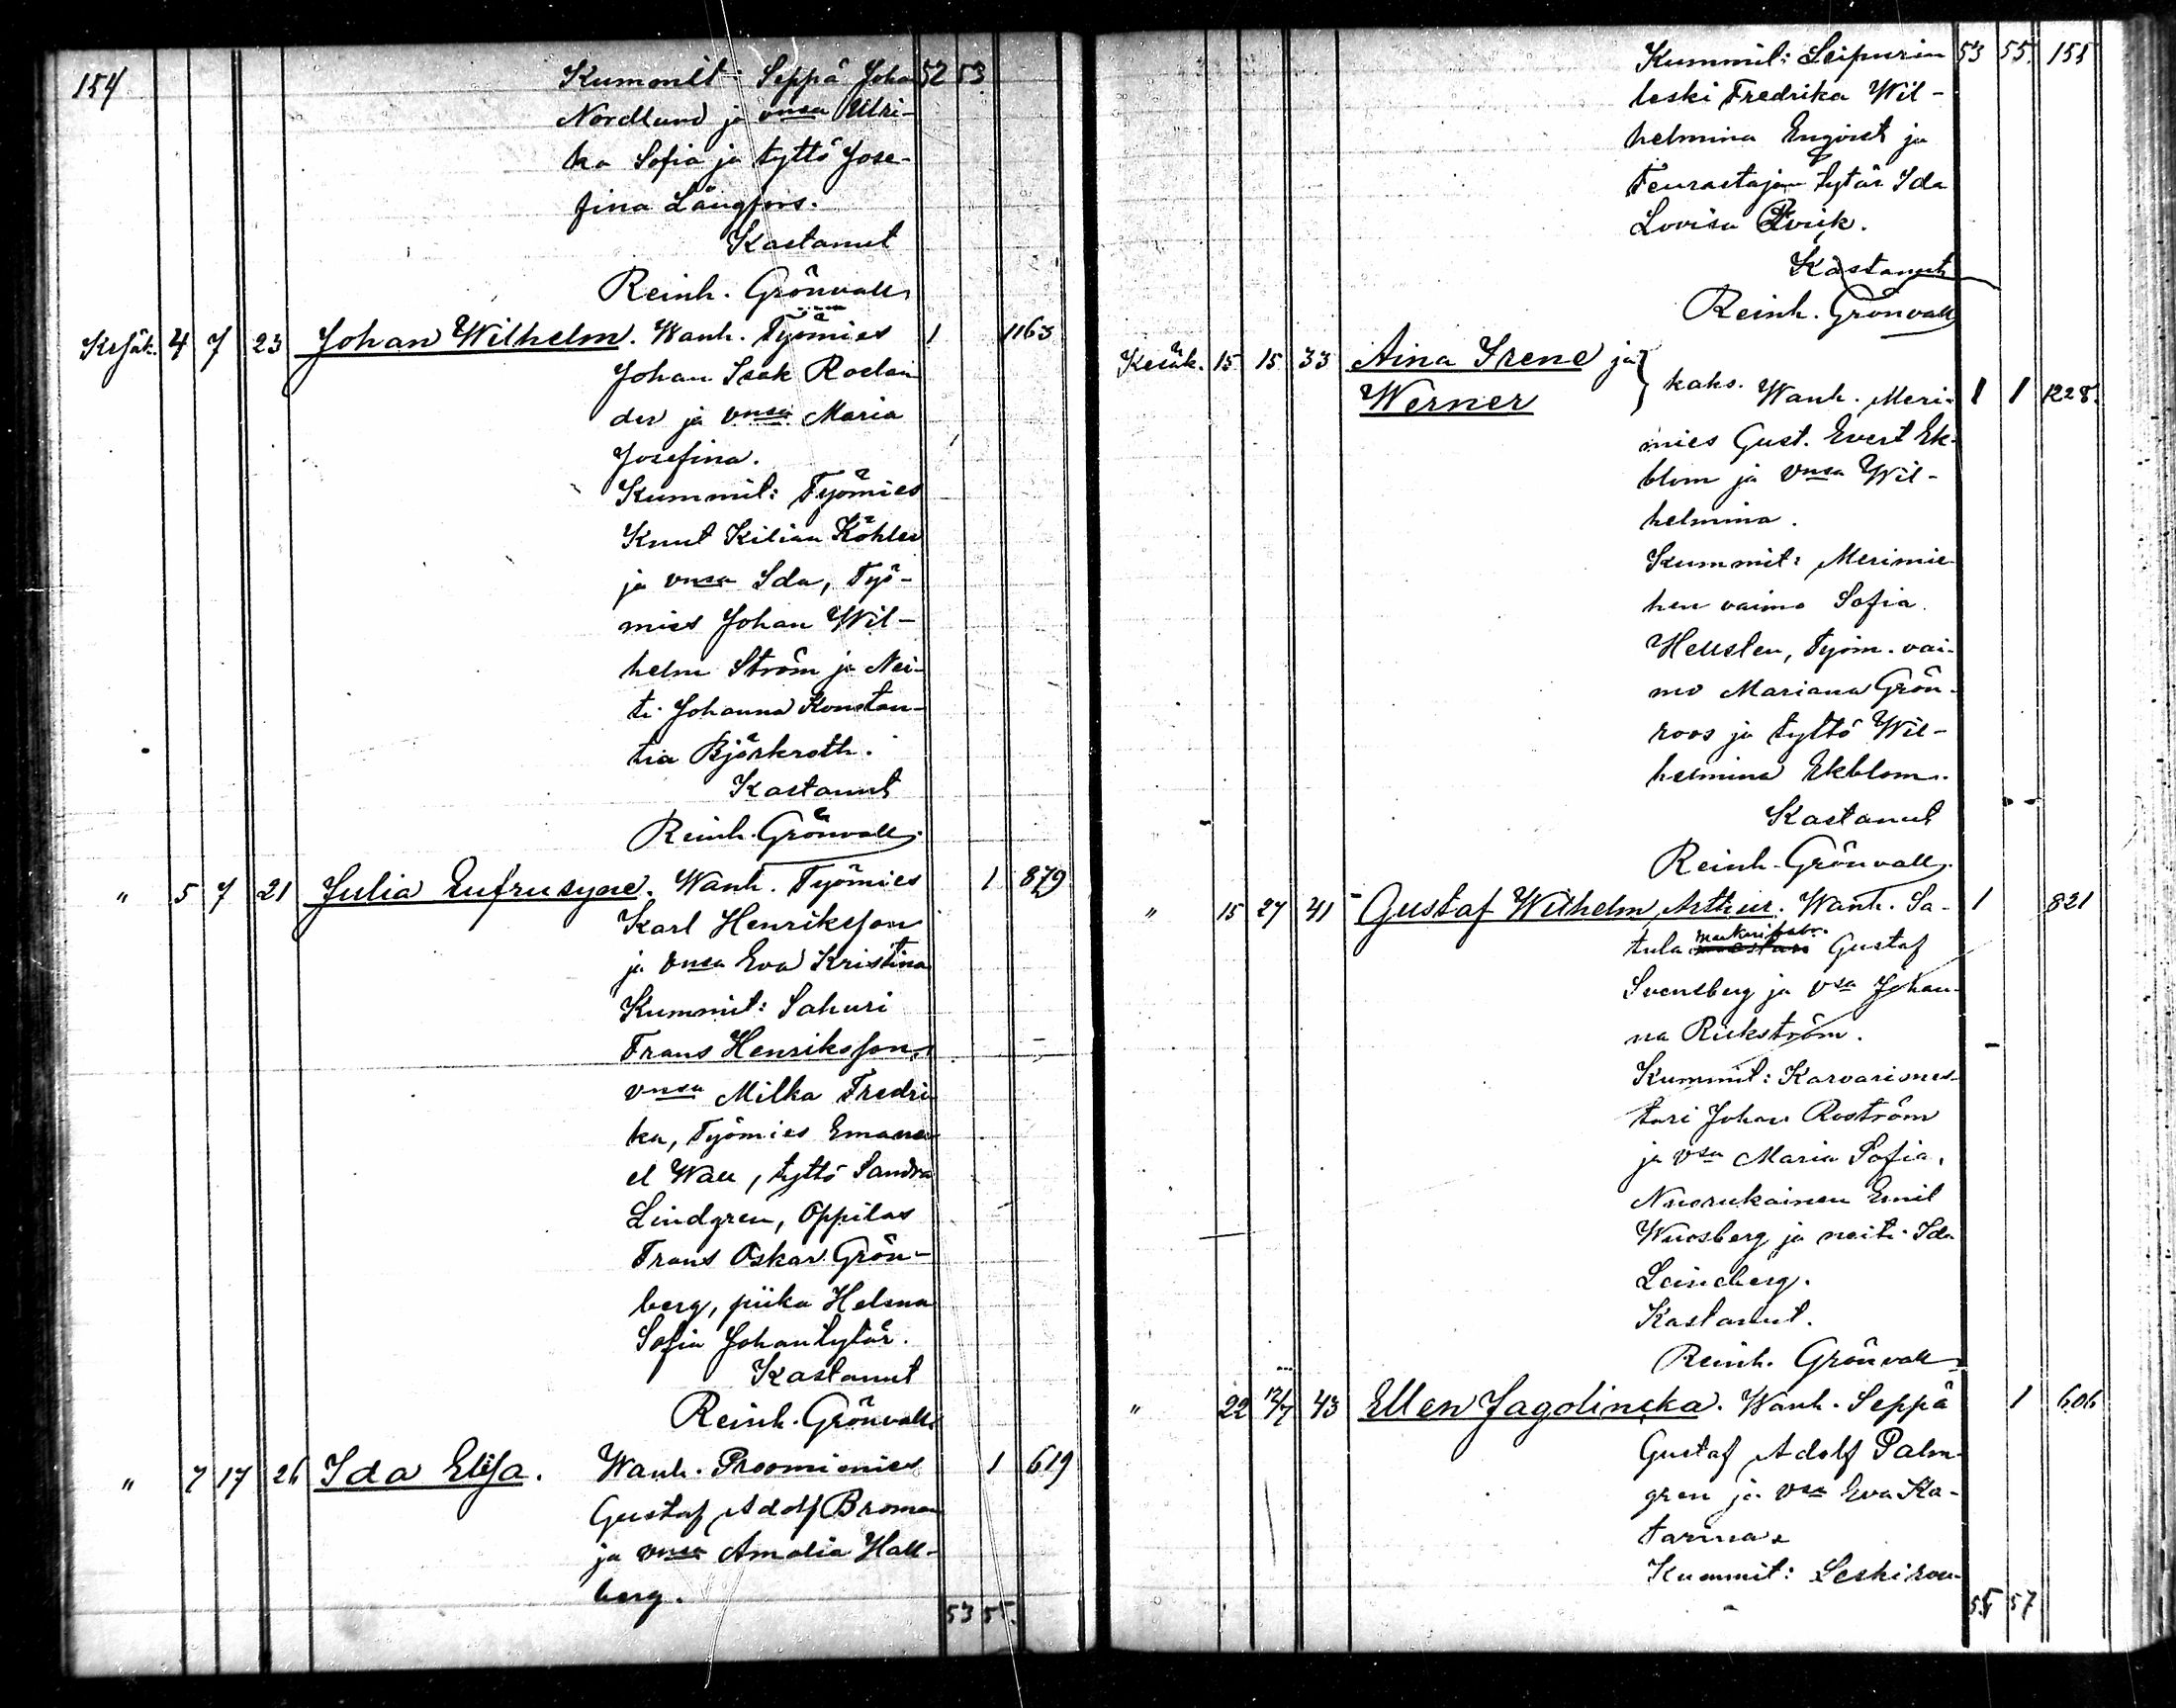 154
Kummit: Seppä Joha 52 53
Nordlund ja vnsa Ulri-
ka Sofia ja tyttö Jose-
fina Långfors.
Kastanut
Reinh. Grönvall
Kesäk. 4 7 23 Johan Wilhelm. Wanh. Työmies 1 1163
Johan Isak Roelan
der ja vnsa Maria
Josefina.
Kummit: Työmies
Knut Kilian Köhler
ja vnsa Ida, Työ-
mies Johan Wil-
helm Ström ja Nei-
ti Johanna Konstan-
tia Björkroth.
Kastanut
Reinh. Grönvall.
" 5 7 21 Julia Eufrusyne. Wanh. Työmies 1 879
Karl Henriksson
ja vnsa Eva Kristina
Kummit: Sahuri
Frans Henriksson,
vnsa Milka Fredri
ka, Työmies Emanu
el Wall, tyttö Sandra
Lindgren, Oppilas
Frans Oskar Grön-
berg, piika Helena
Sofia Johantytär.
Kastanut
Reinh. Grönvall
" 7 17 26 Ida Elisa. Wanh. Proomimies 1 619
Gustaf Adolf Broman
ja vnsa Amalia Hall-
berg.
53 55.
Kummit: Leipurin 53 55. 155
leski Fredrika Wil-
helmina Engvist ja
Teurastajan tytär Ida
Lovisa
Kastanut
Reinh. Grönvall
Kesäk. 15 15 33 Aina Irene ja
Werner } kaks. Wanh. Meri- 1 1 1228.
mies Gust. Evert Ek-
blom ja vnsa Wil-
helmina.
Kummit: Merimie-
hen vaimo Sofia
Hellsten, Työm. vai-
mo Mariana Grön-
roos ja tyttö Wil-
helmina Ekblom.
Kastanut
Reinh. Grönvall.
" 15 27 41 Gustaf Wilhelm Arthur. Wanh. Sa- 1 821
tula Gustaf
Svensberg ja vsa Johan-
na Rickström.
Kummit: Karvarimes-
tari Johan Roström
ja vsa Maria Sofia,
Nuorukainen Emil
Wuosberg ja neiti Ida
Leineberg.
Kastanut.
Reinh. Grönvall
" 22 12/7 43 Ellen Jagolinska. Wanh. Seppä 1 606
Gustaf Adolf Palm-
gren ja vsa Eva Ka-
tarina.
Kummit: Leskirou-
55 57